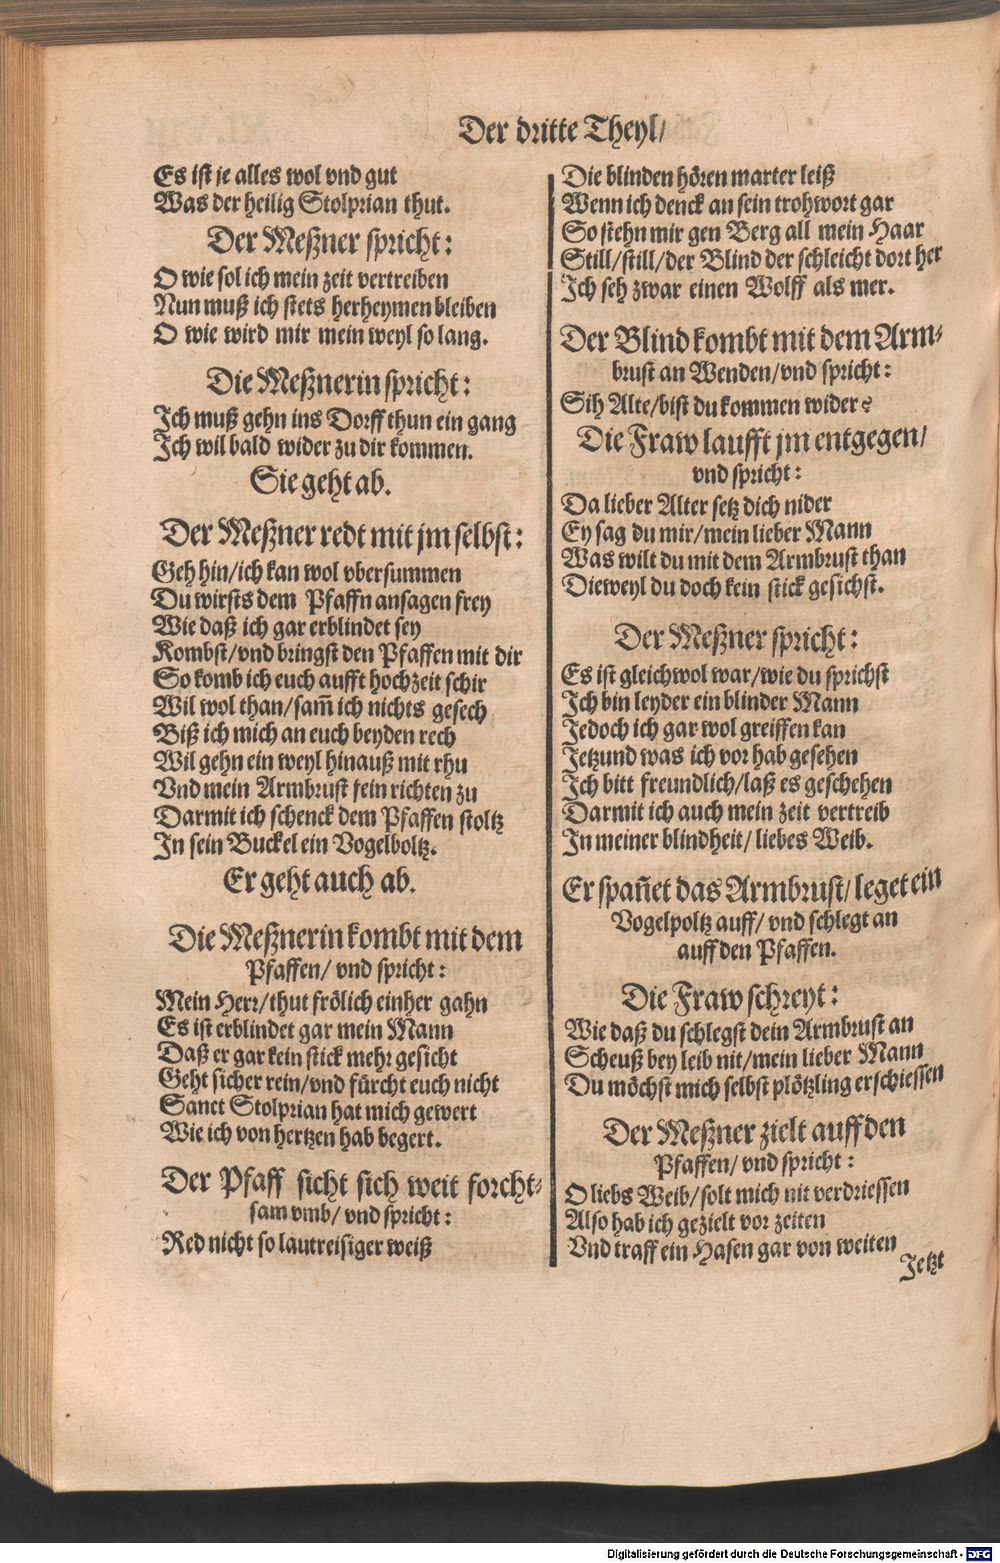 Der dritte Theyl/
Es ist je alles wol vnd gut
Was der heilig Stolprian thut.
Der Meßner spricht:
O wie sol ich mein zeit vertreiben
Nun muß ich stets herheymen bleiben
O wie wird mir mein weyl so lang.
Die Meßnerin spricht:
Ich muß gehn ins Dorff thun ein gang
Ich wil bald wider zu dir kommen.
Sie geht ab.
Der Meßner redt mit jm selbst:
Geh hin/ich kan wol vbersummen
Du wirsts dem Pfaffn ansagen frey
Wie daß ich gar erblindet sey
Kombst/vnd bringst den Pfaffen mit dir
So komb ich euch aufft hochzeit schir
Wil wol than/sam̃ ich nichts gesech
Biß ich mich an euch beyden rech
Wil gehn ein weyl hinauß mit rhu
Vnd mein Armbrust fein richten zu
Darmit ich schenck dem Pfaffen stoltz
In sein Buckel ein Vogelboltz.
Er geht auch ab.
Die Meßnerin kombt mit dem
Pfaffen/ vnd spricht:
Mein Herr/thut frölich einher gahn
Es ist erblindet gar mein Mann
Daß er gar kein stick mehr gesicht
Geht sicher rein/vnd fürcht euch nicht
Sanct Stolprian hat mich gewert
Wie ich von hertzen hab begert.
Der Pfaff sicht sich weit forcht-
sam vmb/ vnd spricht:
Red nicht so laut reisiger weiß
Die blinden hören marter leiß
Wenn ich denck an sein trohwort gar
So stehn mir gen Berg all mein Haar
Still/still/der Blind der schleicht dort her
Ich seh zwar einen Wolff als mer.
Der Blind kombt mit dem Arm-
brust an Wenden/vnd spricht:
Sih Alte/bist du kommen wider?
Die Fraw laufft jm entgegen/
vnd spricht:
Da lieber Alter setz dich nider
Ey sag du mir/mein lieber Mann
Was wilt du mit dem Armbrust than
Dieweyl du doch kein stick gesichst.
Der Meßner spricht:
Es ist gleichwol war/wie du sprichst
Ich bin leyder ein blinder Mann
Jedoch ich gar wol greiffen kan
Jetzund was ich vor hab gesehen
Ich bitt freundlich/laß es geschehen
Darmit ich auch mein zeit vertreib
In meiner blindheit/ liebes Weib.
Er spañet das Armbrust/ leget ein
Vogelpoltz auff/ vnd schlegt an
auff den Pfaffen.
Die Fraw schreyt:
Wie daß du schlegst dein Armbrust an
Scheuß bey leib nit/mein lieber Mann
Du möchst mich selbst plötzling erschiessen
Der Meßner zielt auff den
Pfaffen/ vnd spricht:
O liebs Weib/solt mich nit verdriessen
Also hab ich gezielt vor zeiten
Vnd traff ein Hasen gar von weiten
Jetzt
Digitalisierung gefördert durch die Deutsche Forschungsgemeinschaft - DFG